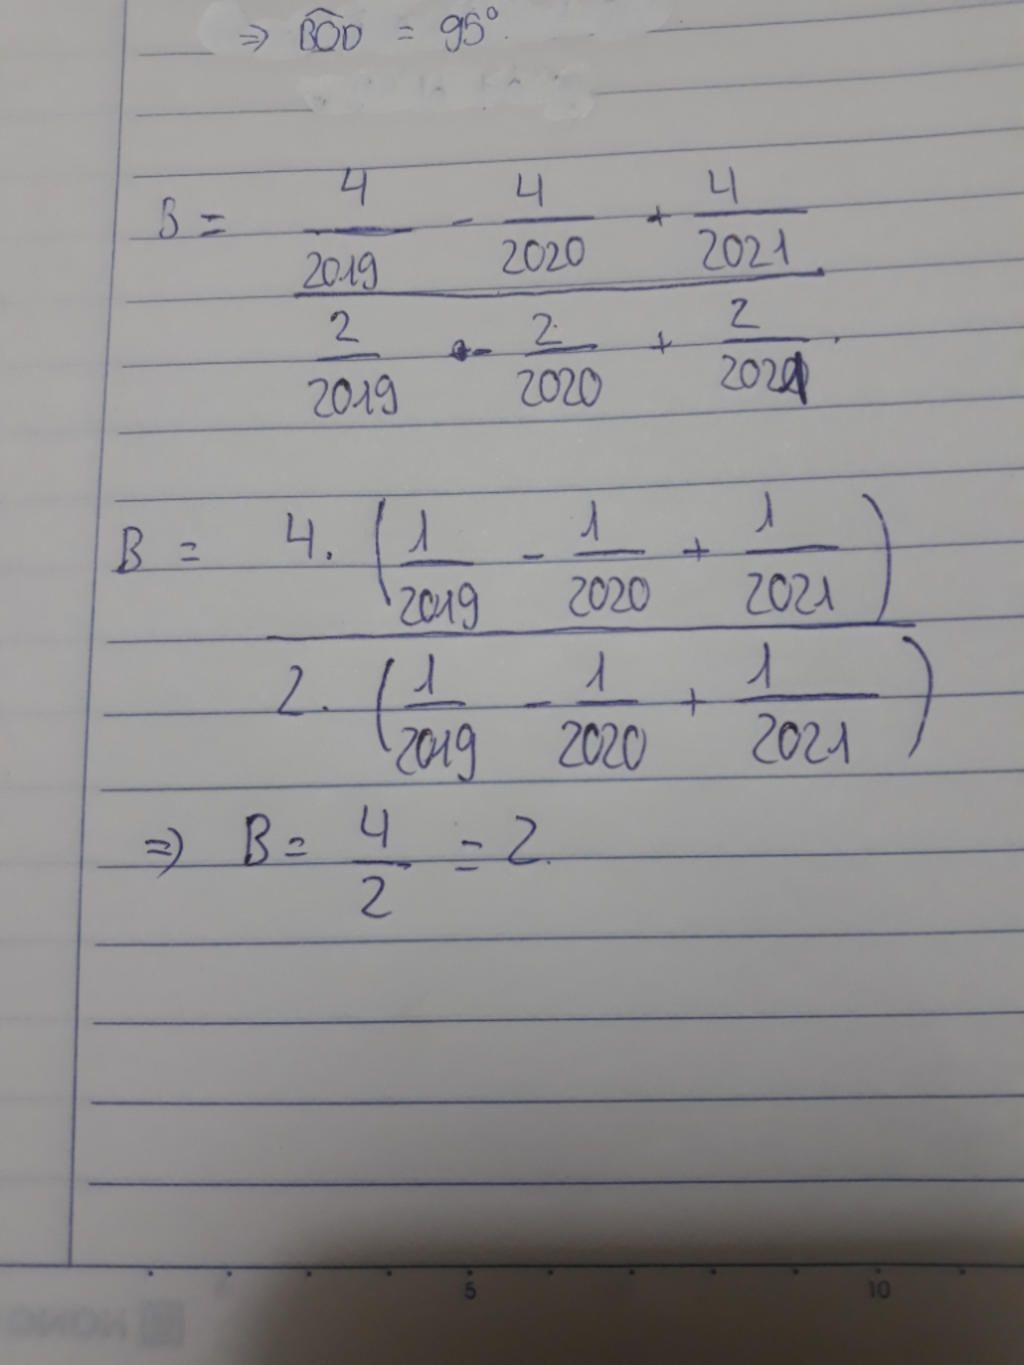 ⇒ BÔD = 95°.
B = 4/2019 - 4/2020 + 4/2021
2/2019 - 2/2020 + 2/2021
B = 4. (1/2019 - 1/2020 + 1/2021)
2. (1/2019 - 1/2020 + 1/2021)
⇒ B = 4/2 = 2.
5 10